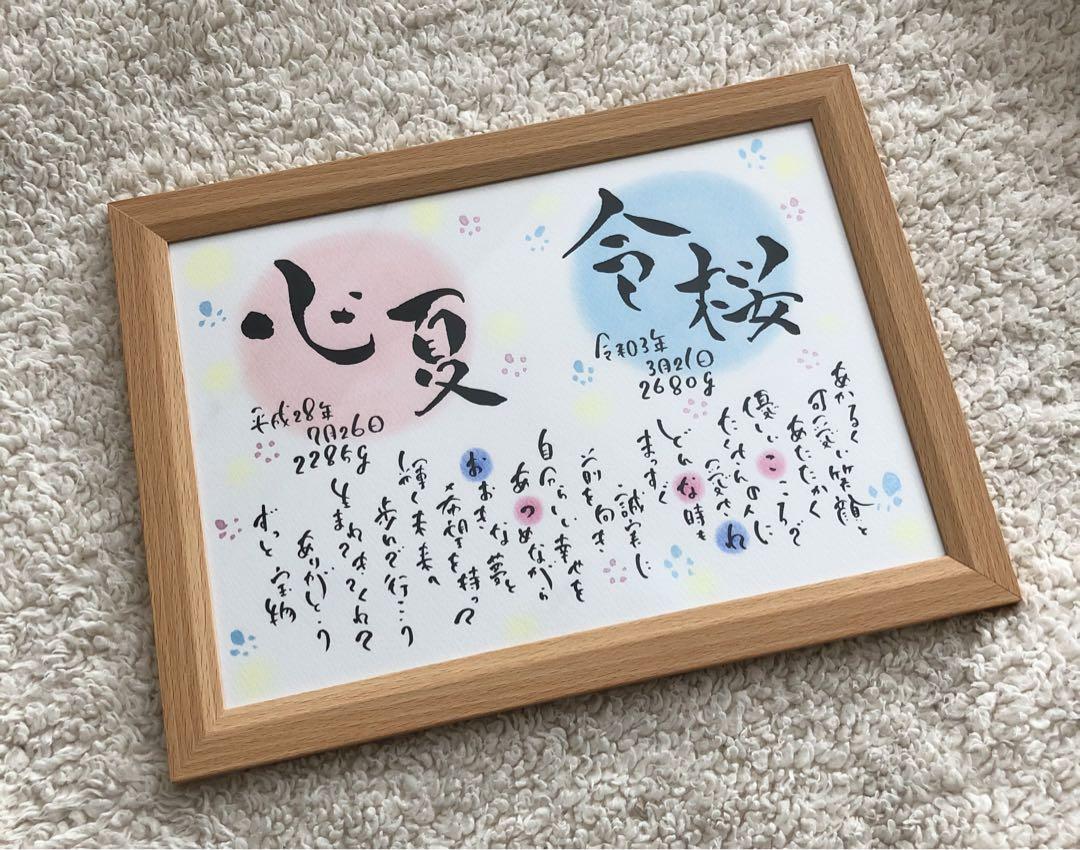 令桜
令和3年
3月21日
2680g
心夏
平成28年
7月26日
2285g
あかるく
可愛い笑顔と
あたたかく
優しいこころで
たくさんの人に
愛され
どんな時も
まっすぐ
誠実に
前を向き
自分らしい幸せを
あつめながら
おおきな夢と
希望を持って
輝く未来へ
歩んで行こう
うまれてきてくれて
ありがとう
ずっと宝物